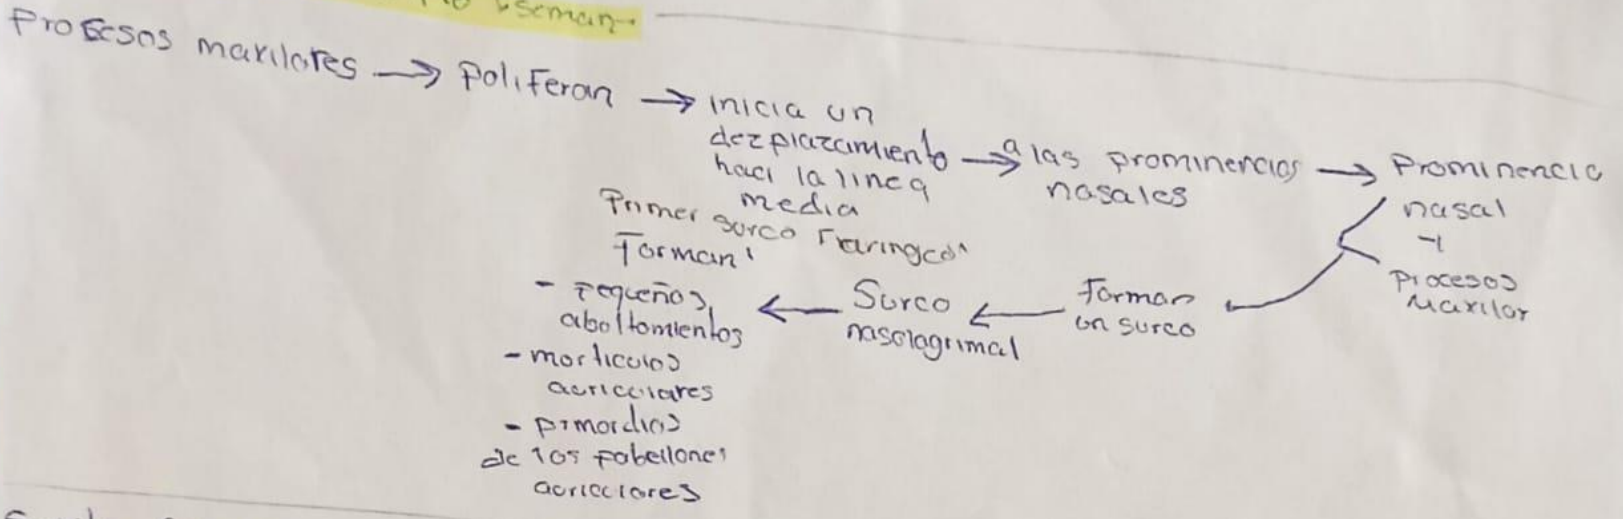 seman
Procesos maxilares → Poliferan → inicia un
dezplazamiento
haci la linea
media
→ a las prominencias
nasales
→ Prominencia
nasal
+
Procesos
Maxilar
Forman
un surco
← Surco
nasolagrimal
←
Primer surco Faringeo
Forman
- pequeños
aboltamientos
- morticulos
auriculares
- primordios
de los pabellones
auriculares